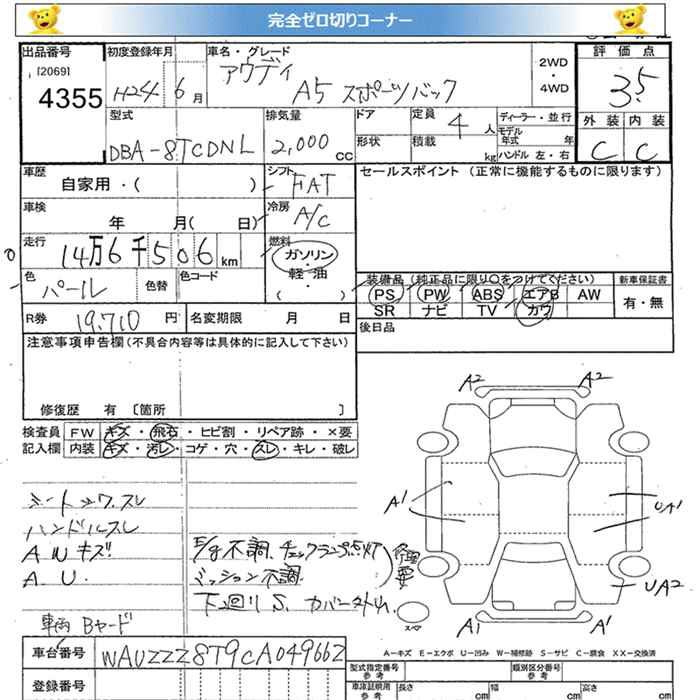 完全ゼロ切りコーナー
出品番号
[2069]
4355
初度登録年月
H24 6月
車名・グレード
アウディ
A5 スポーツバック
2WD
・
4WD
評価点
3.5
外装 内装
C C
型式
DBA-8TCDNL
排気量
2,000 cc
ドア
形状
定員
4人
積載
kg
ディーラー・並行
モデル年式 年
ハンドル 左・右
車歴
自家用・( )
シフト
FAT
セールスポイント (正常に機能するものに限ります)
車検
年 月( 日)
冷房
A/C
走行
14万6千506km
燃料
ガソリン・
軽・油
( )
色
パール
色替
色コード
装備品 (純正品に限り○をつけてください)
PS PW ABS エアB AW
SR ナビ TV カワ
新車保証書
有・無
R券
19,710円
名変期限 月 日
後日品
注意事項申告欄(不具合内容等は具体的に記入して下さい)
修復歴 有 〔箇所 〕
検査員 FW キズ・飛石・ヒビ割・リペア跡・×要
記入欄 内装 キズ・汚レ・コゲ・穴・スレ・キレ・破レ
シートシワ.スレ
ハンドルスレ
AWキズ
A.U.
E/g不調.チェックランプ点灯
ミッション不調.
修理要
下廻りS.カバー外れ.
車両Bヤード
A2 A2
A1
UA1
UA2
A1 A1
スペア
A-キズ E-エクボ U-凹み W-補修跡 S-サビ C-腐食 XX-交換済
車台番号
WAUZZZ8T9CA049662
登録番号
型式指定番号
参考
類別区分番号
参考
車庫証明用
参考
長さ cm 幅 cm 高さ cm